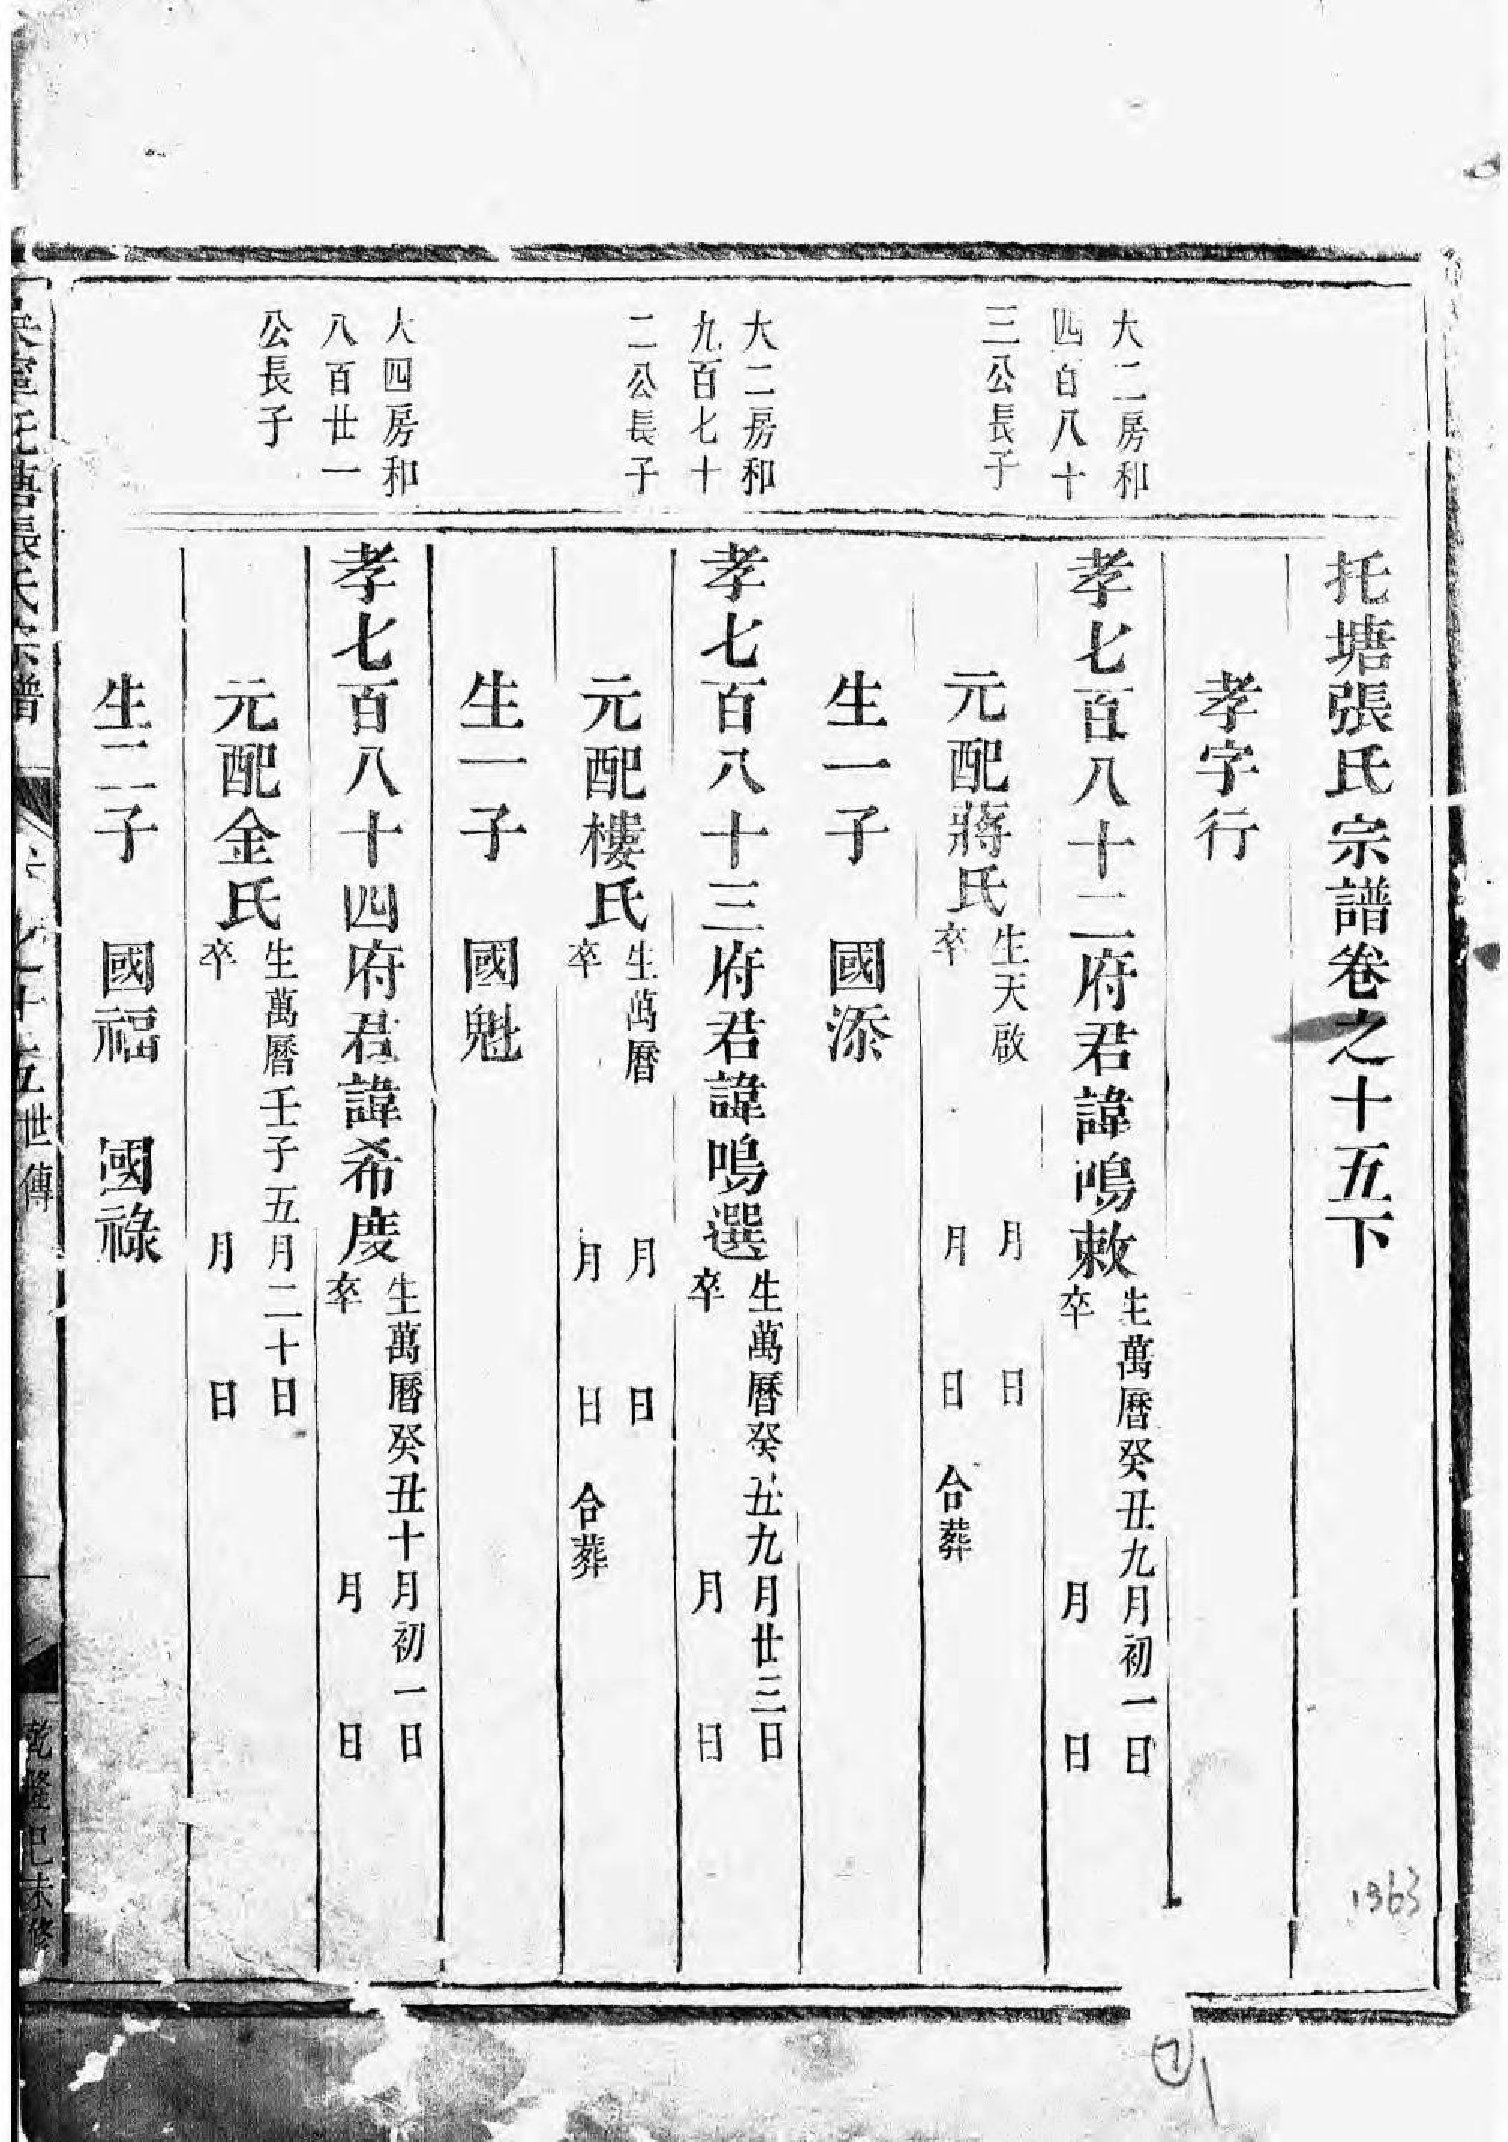 托塘張氏宗譜卷之十五下
孝字行
大二房和
四百八十
三公長子
孝七百八十二府君諱鳴敕
生萬曆癸丑九月初一日
卒 月 日
元配蔣氏
生天啟 月 日
卒 月 日 合葬
生一子 國添
大二房和
九百七十
二公長子
孝七百八十三府君諱鳴選
生萬曆癸丑九月廿三日
卒 月 日
元配樓氏
生萬曆 月 日
卒 月 日 合葬
生一子 國魁
大四房和
八百廿一
公長子
孝七百八十四府君諱希慶
生萬曆癸丑十月初一日
卒 月 日
元配金氏
生萬曆壬子五月二十日
卒 月 日
生二子 國福 國祿
托塘張氏宗譜
之十五世傳
一
乾隆己未修
1363